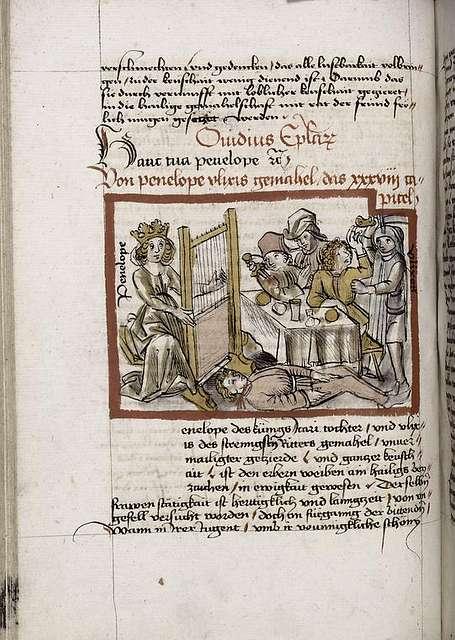 verschmechen / vnd gedencken / das alle luslbarkait volbrin=
gen / zu der keüschait wenig dienend ist / Darumb das
sie durch vernunfft mit loblicher keüschait gezieret /
in die hailige gemahelschafft mit rat der freünd frö=
lich mügen gesetzet werden
Ouidius Eplarꝝ
Hanc tua penelope
Von penelope vlixis gemahel / das xxxviij ca=
pitel
Penelope
enelope des künigs Icari tochter / vnd vlix=
is des strengisten ritters gemahel / vnuer=
mailigter gezierde / vnd ganczer keüsch=
ait / ist den erbern weiben am hailigs
zaichen / in ewikait gewesen Derselben
frawen stätigkait ist hertigklich vnd langzeit / von
gesell versucht worden / doch
wann in irer iugent / vmb ir wunnigkliche schöny